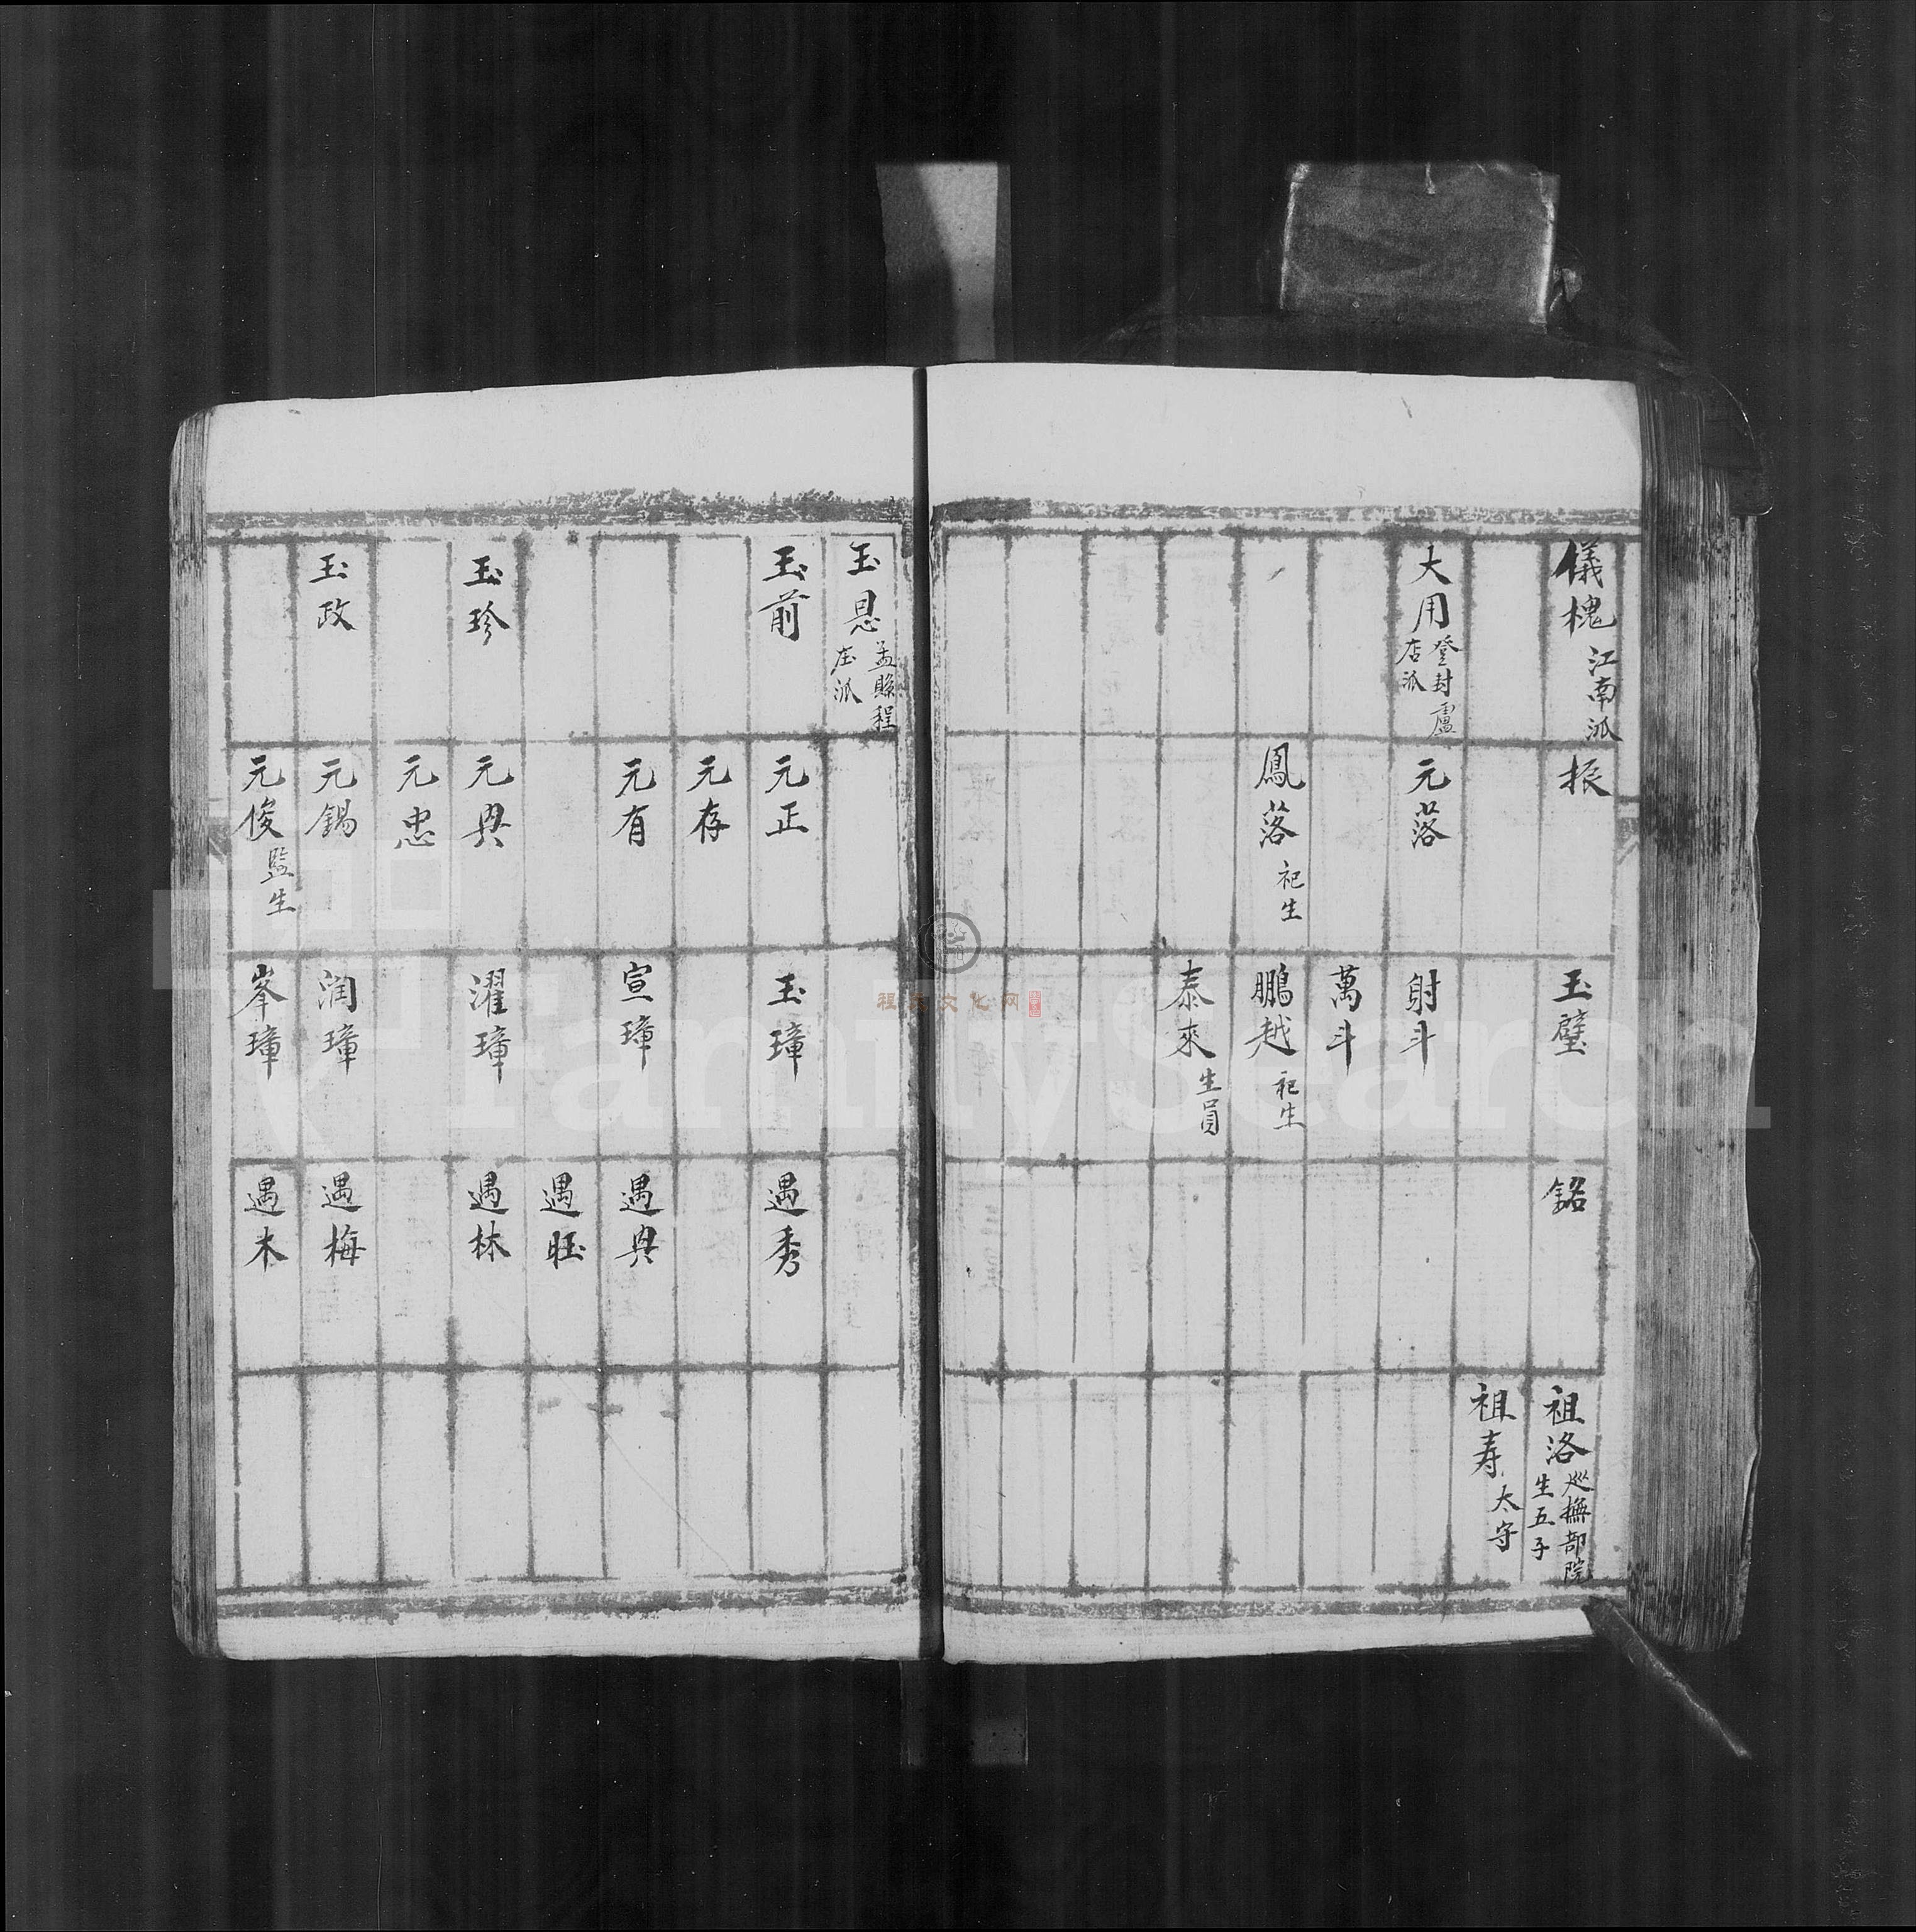 儀槐 江南派
大用 登封盧店派
振
元落
鳳落 祀生
玉璧
射斗
萬斗
鵬越 祀生
泰來 生員
銘
祖洛 巡撫部院 生五子
祖寿 太守
玉恩 孟縣程庄派
玉前
玉珍
玉政
元正
元存
元有
元典
元忠
元錫
元俊 監生
玉璋
宣璋
濯璋
润璋
峯璋
遇秀
遇典
遇旺
遇林
遇梅
遇木
程氏文化网
FamilySearch